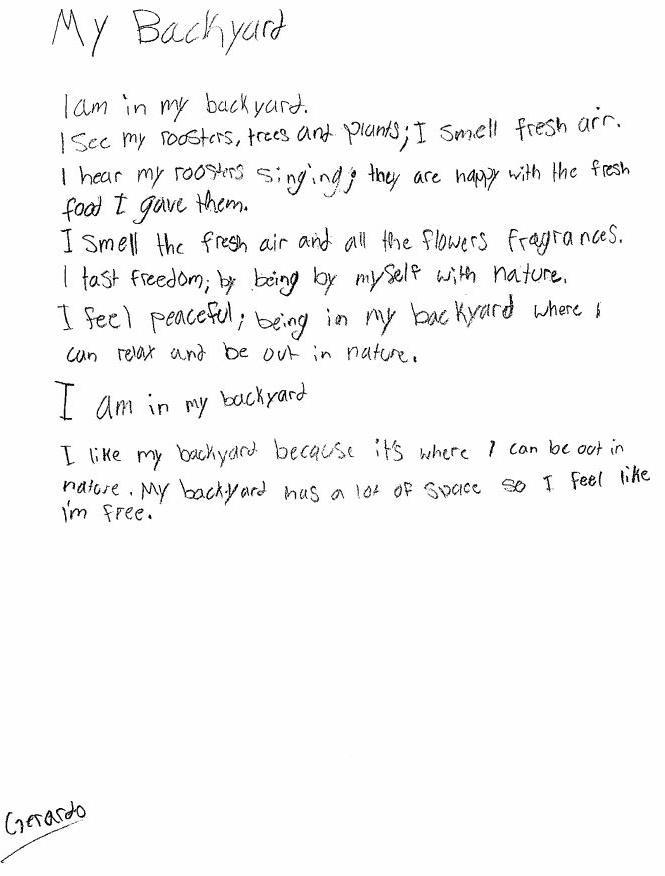 My Backyard
I am in my backyard.
I see my roosters, trees and plants; I smell fresh air.
I hear my roosters singing; they are happy with the fresh
food I gave them.
I smell the fresh air and all the flowers fragrances.
I tast freedom; by being by myself with nature.
I feel peaceful; being in my backyard where I
can relax and be out in nature.
I am in my backyard
I like my backyard because it's where I can be out in
nature. My backyard has a lot of space so I feel like
i'm free.
Gerardo